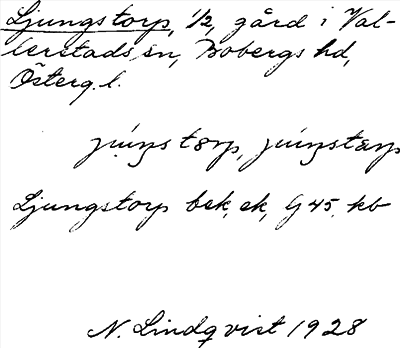 Ljungstorp, 1/2, gård i Val-
lerstads sn, Bobergs hd,
Österg. l.
Ljungstorp bek. ek, G 45. kb
N. Lindqvist 1928